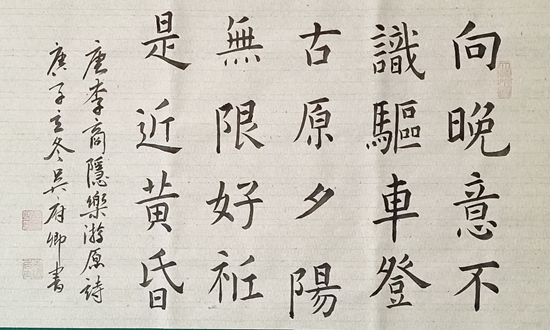 向晚意不
識驅車登
古原夕陽
無限好祗
是近黃昏
唐李商隱樂游原詩
庚子立冬吳府卿書